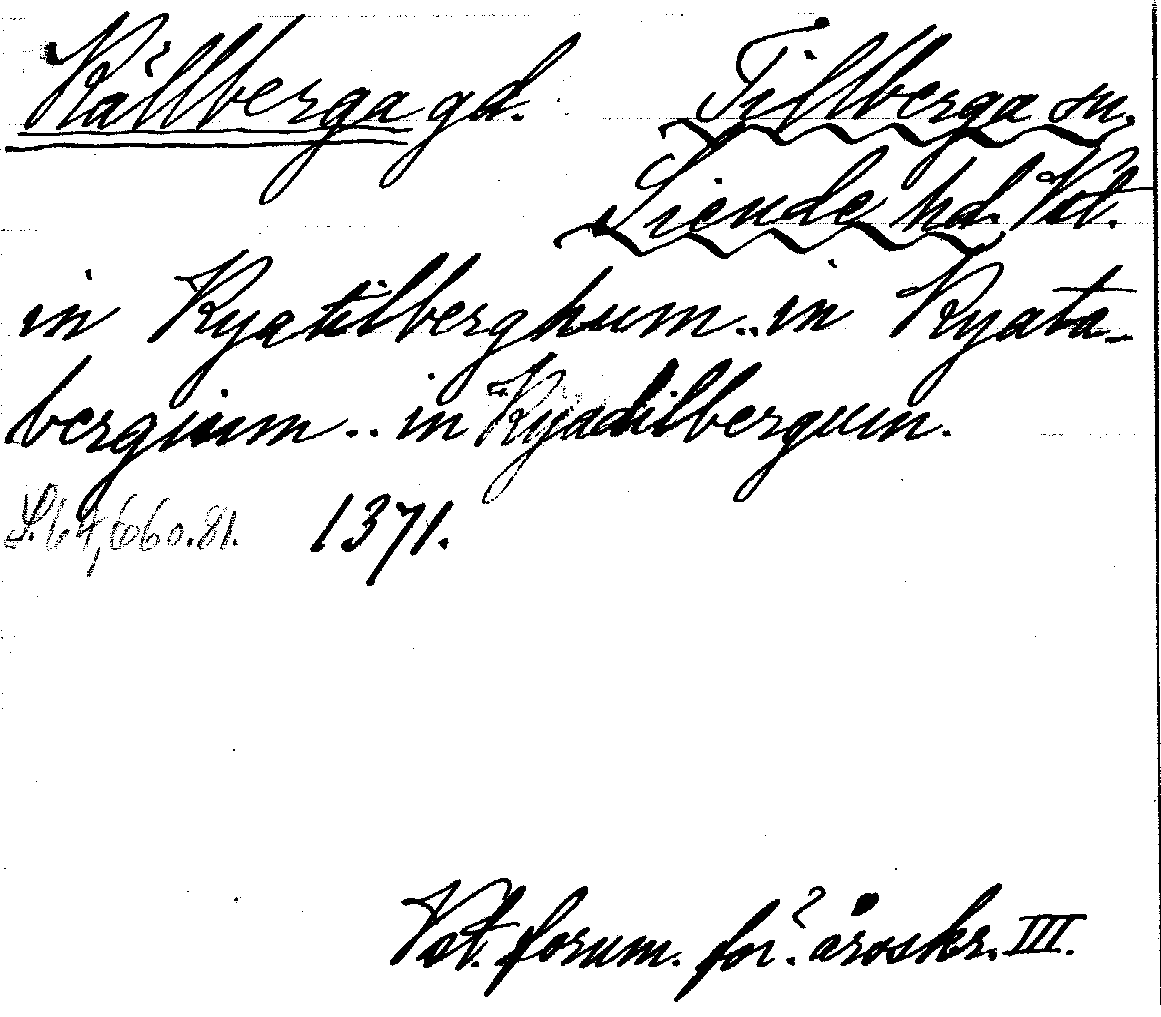 Källberga gd. Tillberga sn.
Siende hd. Vst.
in Kyætilberghum .. in Kyata-
bergium .. in Kyædilbergum.
S. 64, 660. 81. 1371.
Vst. fornm. för. årsskr. III.